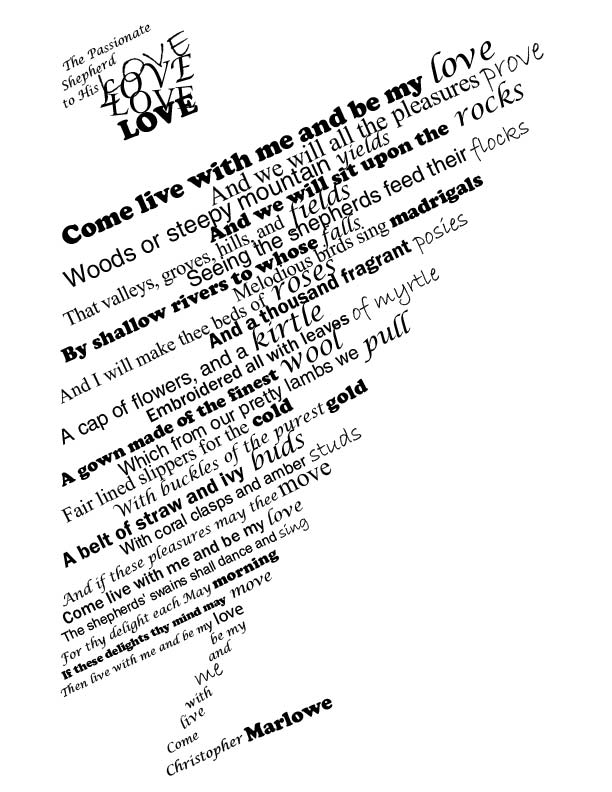 The Passionate
Shepherd
to His LOVE
LOVE
LOVE
LOVE
Come live with me and be my love
And we will all the pleasures prove
Woods or steepy mountain yields
And we will sit upon the rocks
That valleys, groves, hills, and fields
Seeing the shepherds feed their flocks
By shallow rivers to whose falls
Melodious birds sing madrigals
And I will make thee beds of roses
And a thousand fragrant posies
A cap of flowers, and a kirtle
Embroidered all with leaves of myrtle
A gown made of the finest wool
Which from our pretty lambs we pull
Fair lined slippers for the cold
With buckles of the purest gold
A belt of straw and ivy buds
With coral clasps and amber studs
And if these pleasures may thee move
Come live with me and be my love
The shepherds' swains shall dance and sing
For thy delight each May morning
If these delights thy mind may move
Then live with me and be my love
be my
and
me
with
live
Come
Christopher Marlowe